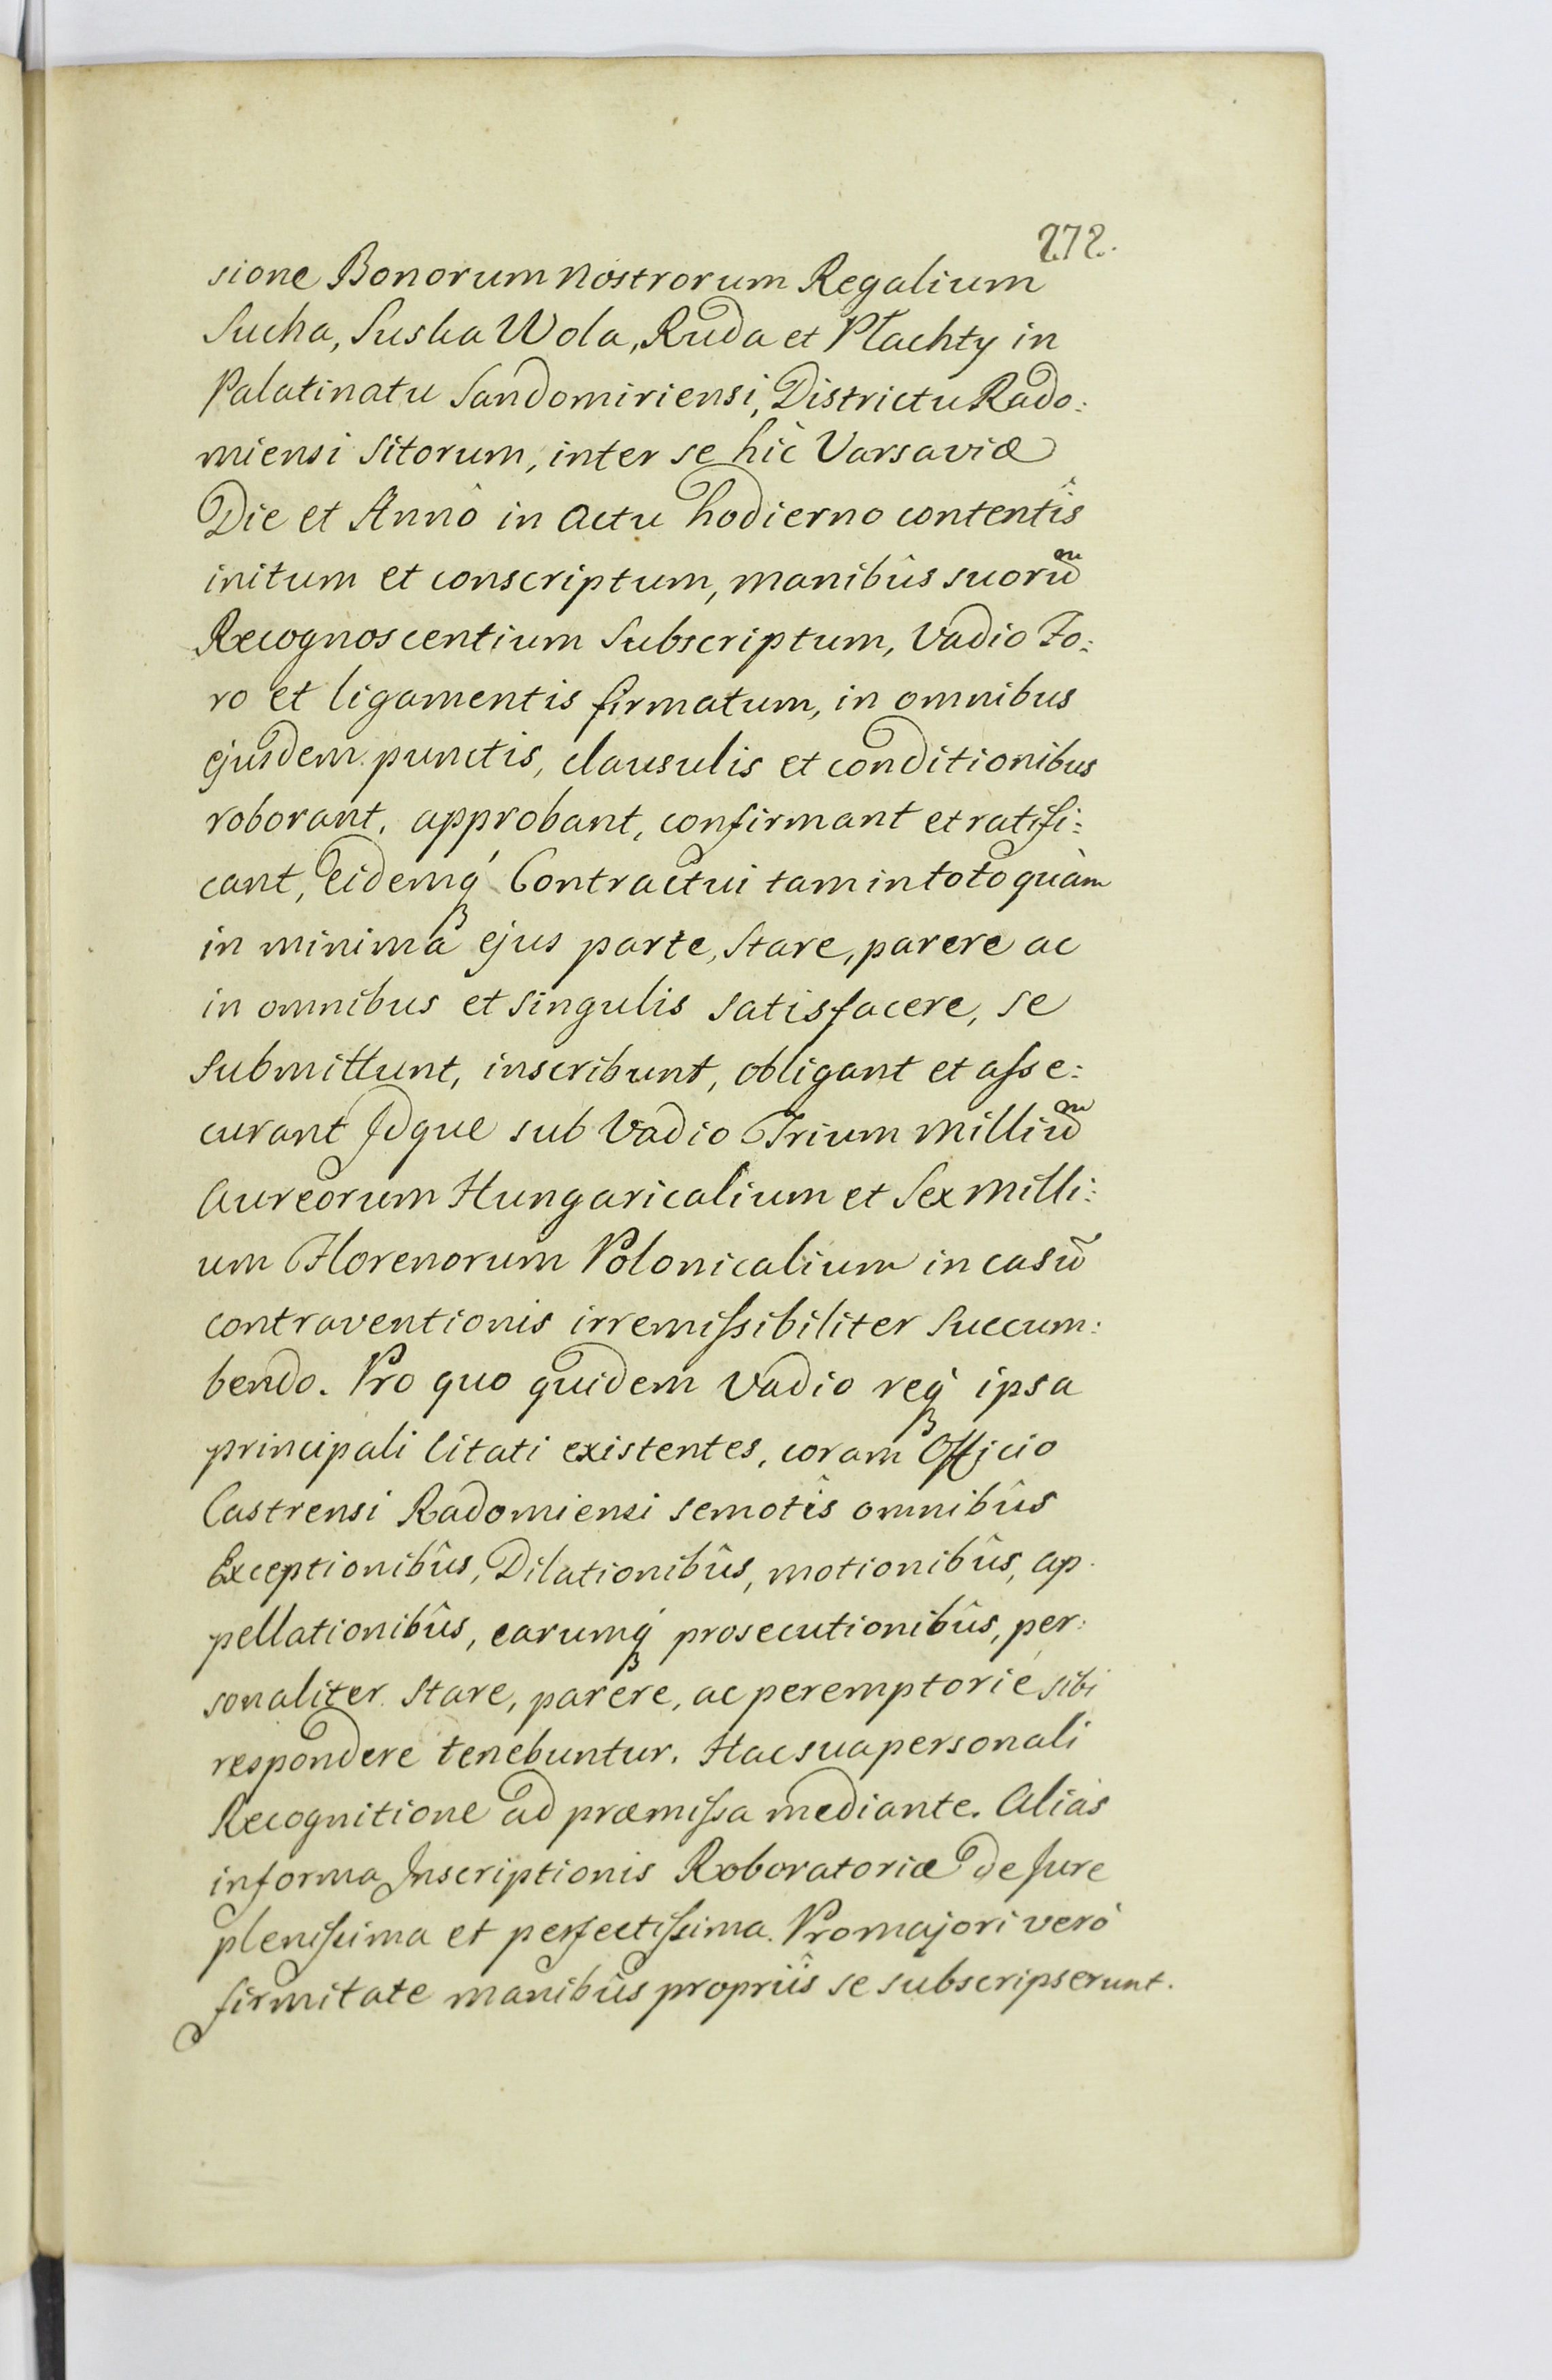 272.
sione Bonorum nostrorum Regalium
Sucha, Suska Wola, Ruda et Płachty in
Palatinatu Sandomiriensi, Districtu Rado:
miensi Sitorum, inter se hic Varsaviæ
Die et Annô in actu hodierno contentîs
initum et conscriptum, manibûs suorũm
Recognoscentium Subscriptum, Vadio Fo:
ro et ligamentis firmatum, in omnibus
ejusdem punctis, clausulis et conditionibus
roborant, approbant, confirmant et ratifi:
cant, Eidemq́ Contractui tam in toto quàm
in minimâ ejus parte, Stare, parere ac
in omnibus et singulis satisfacere, se
submittunt, inscribunt, obligant et aſse:
curant Idque sub Vadio Trium Milliũm
Aureorum Hungaricalium et Sex Milli:
um Florenorum Polonicalium in casũ
contraventionis irremiſsibiliter Succum:
bendo. Pro quo quidem Vadio req́ ipsa
principali Citati existentes, coram Officio
Castrensi Radomiensi semotîs omnibûs
Exceptionibûs, Dilationibûs, motionibûs, ap:
pellationibûs, earumq́ prosecutionibûs, per:
sonaliter Stare, parere, ac peremptoriè sibi
respondere tenebuntur. Hac sua personali
Recognitione ad præmiſsa mediante. Aliàs
in forma Inscriptionis Roboratoriæ de Jure
pleniſsima et perfectiſsima. Pro majori verò
firmitate manibûs propriîs se subscripserunt.